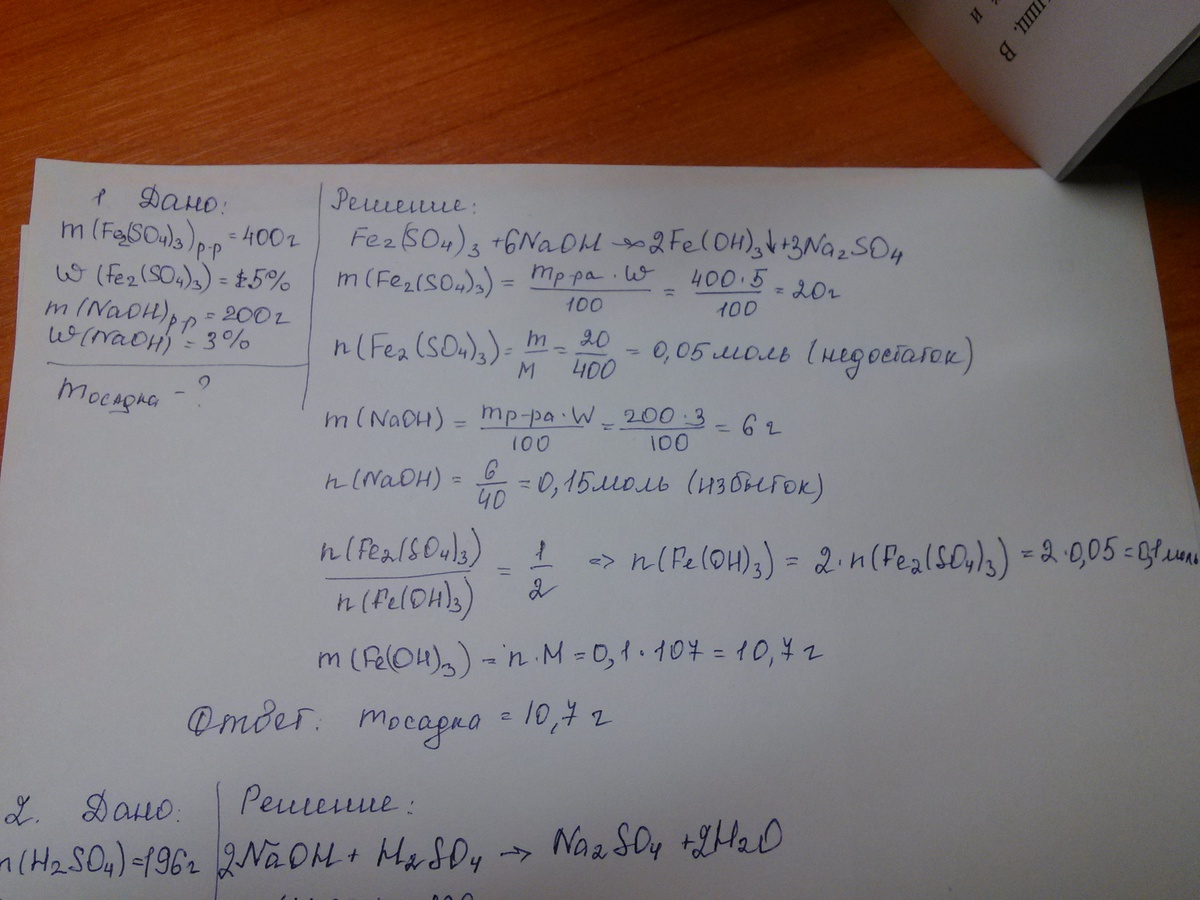 1 Дано:
m(Fe2(SO4)3)р-р = 400г
W(Fe2(SO4)3) = 5%
m(NaOH)р-р = 200г
W(NaOH) = 3%
mосадка - ?
Решение:
Fe2(SO4)3 + 6NaOH → 2Fe(OH)3↓ + 3Na2SO4
m(Fe2(SO4)3) = mр-ра · W / 100 = 400·5 / 100 = 20г
n(Fe2(SO4)3) = m/M = 20/400 = 0,05 моль (недостаток)
m(NaOH) = mр-ра · W / 100 = 200·3 / 100 = 6г
n(NaOH) = 6/40 = 0,15 моль (избыток)
n(Fe2(SO4)3) / n(Fe(OH)3) = 1/2 => n(Fe(OH)3) = 2·n(Fe2(SO4)3) = 2·0,05 = 0,1 моль
m(Fe(OH)3) = n·M = 0,1·107 = 10,7 г
Ответ: mосадка = 10,7 г
2. Дано:
m(H2SO4) = 196г
Решение:
2NaOH + H2SO4 → Na2SO4 + 2H2O
В
и